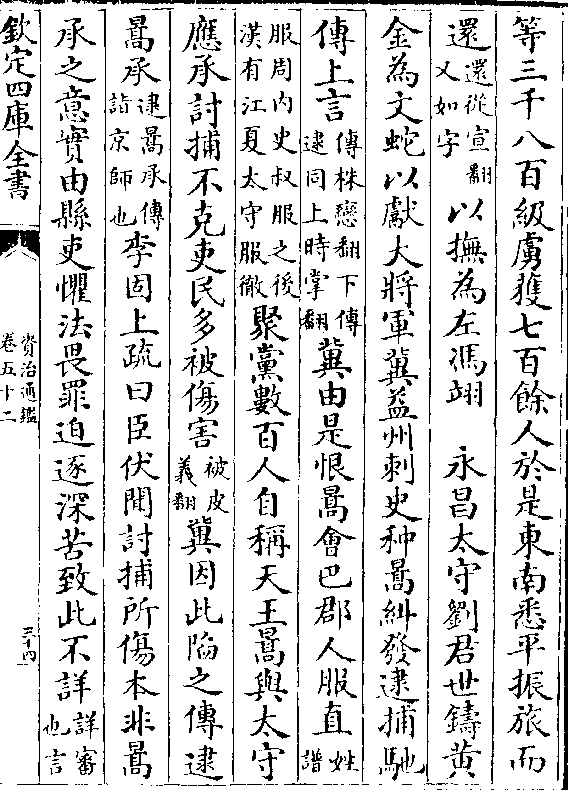 等三千八百級虜獲七百餘人於是東南悉平振旅而
還還從宣翻又如字以撫為左馮翊　永昌太守劉君世鑄黄
金為文蛇以獻大將軍冀益州刺史种暠糾發逮捕馳
傳上言傳株戀翻下傳逮同上時掌翻冀由是恨暠會巴郡人服直姓譜
服周内史叔服之後漢有江夏太守服徹聚黨數百人自稱天王暠與太守
應承討捕不克吏民多被傷害被皮義翻冀因此陷之傳逮
暠承逮暠承傳詣京師也李固上疏曰臣伏聞討捕所傷本非暠
承之意實由縣吏懼法畏罪迫逐深苦致此不詳詳審也言
欽定四庫全書
資治通鑑
卷五十二
三十四